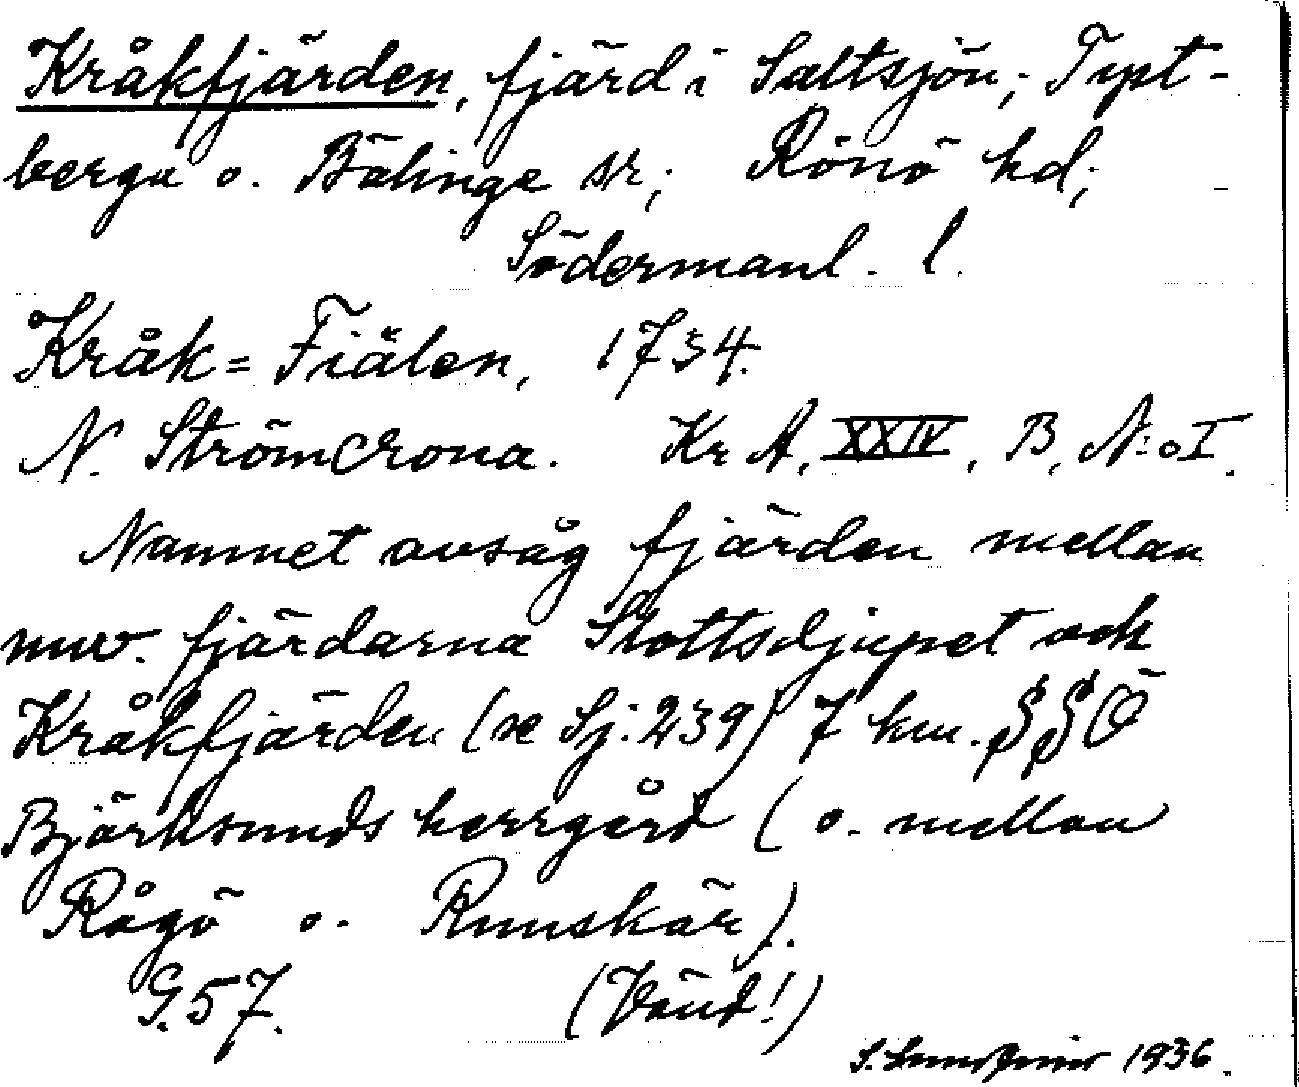 Kråkfjärden, fjärd i Saltsjön; Tyst-
berga o. Bälinge sr; Rönö hd;
Södermanl. l.
Kråk=Fiälen, 1734.
N. Strömcrona. Kr A, XXIV, B, N:o I.
Namnet avsåg fjärden mellan
nuv. fjärdarna Slottsdjupet och
Kråkfjärden (se Sj. 239) 7 km. SSÖ
Björksunds herrgård (o. mellan
Rågö o. Runskär).
G. 57. (Vänd!)
S. 1936.